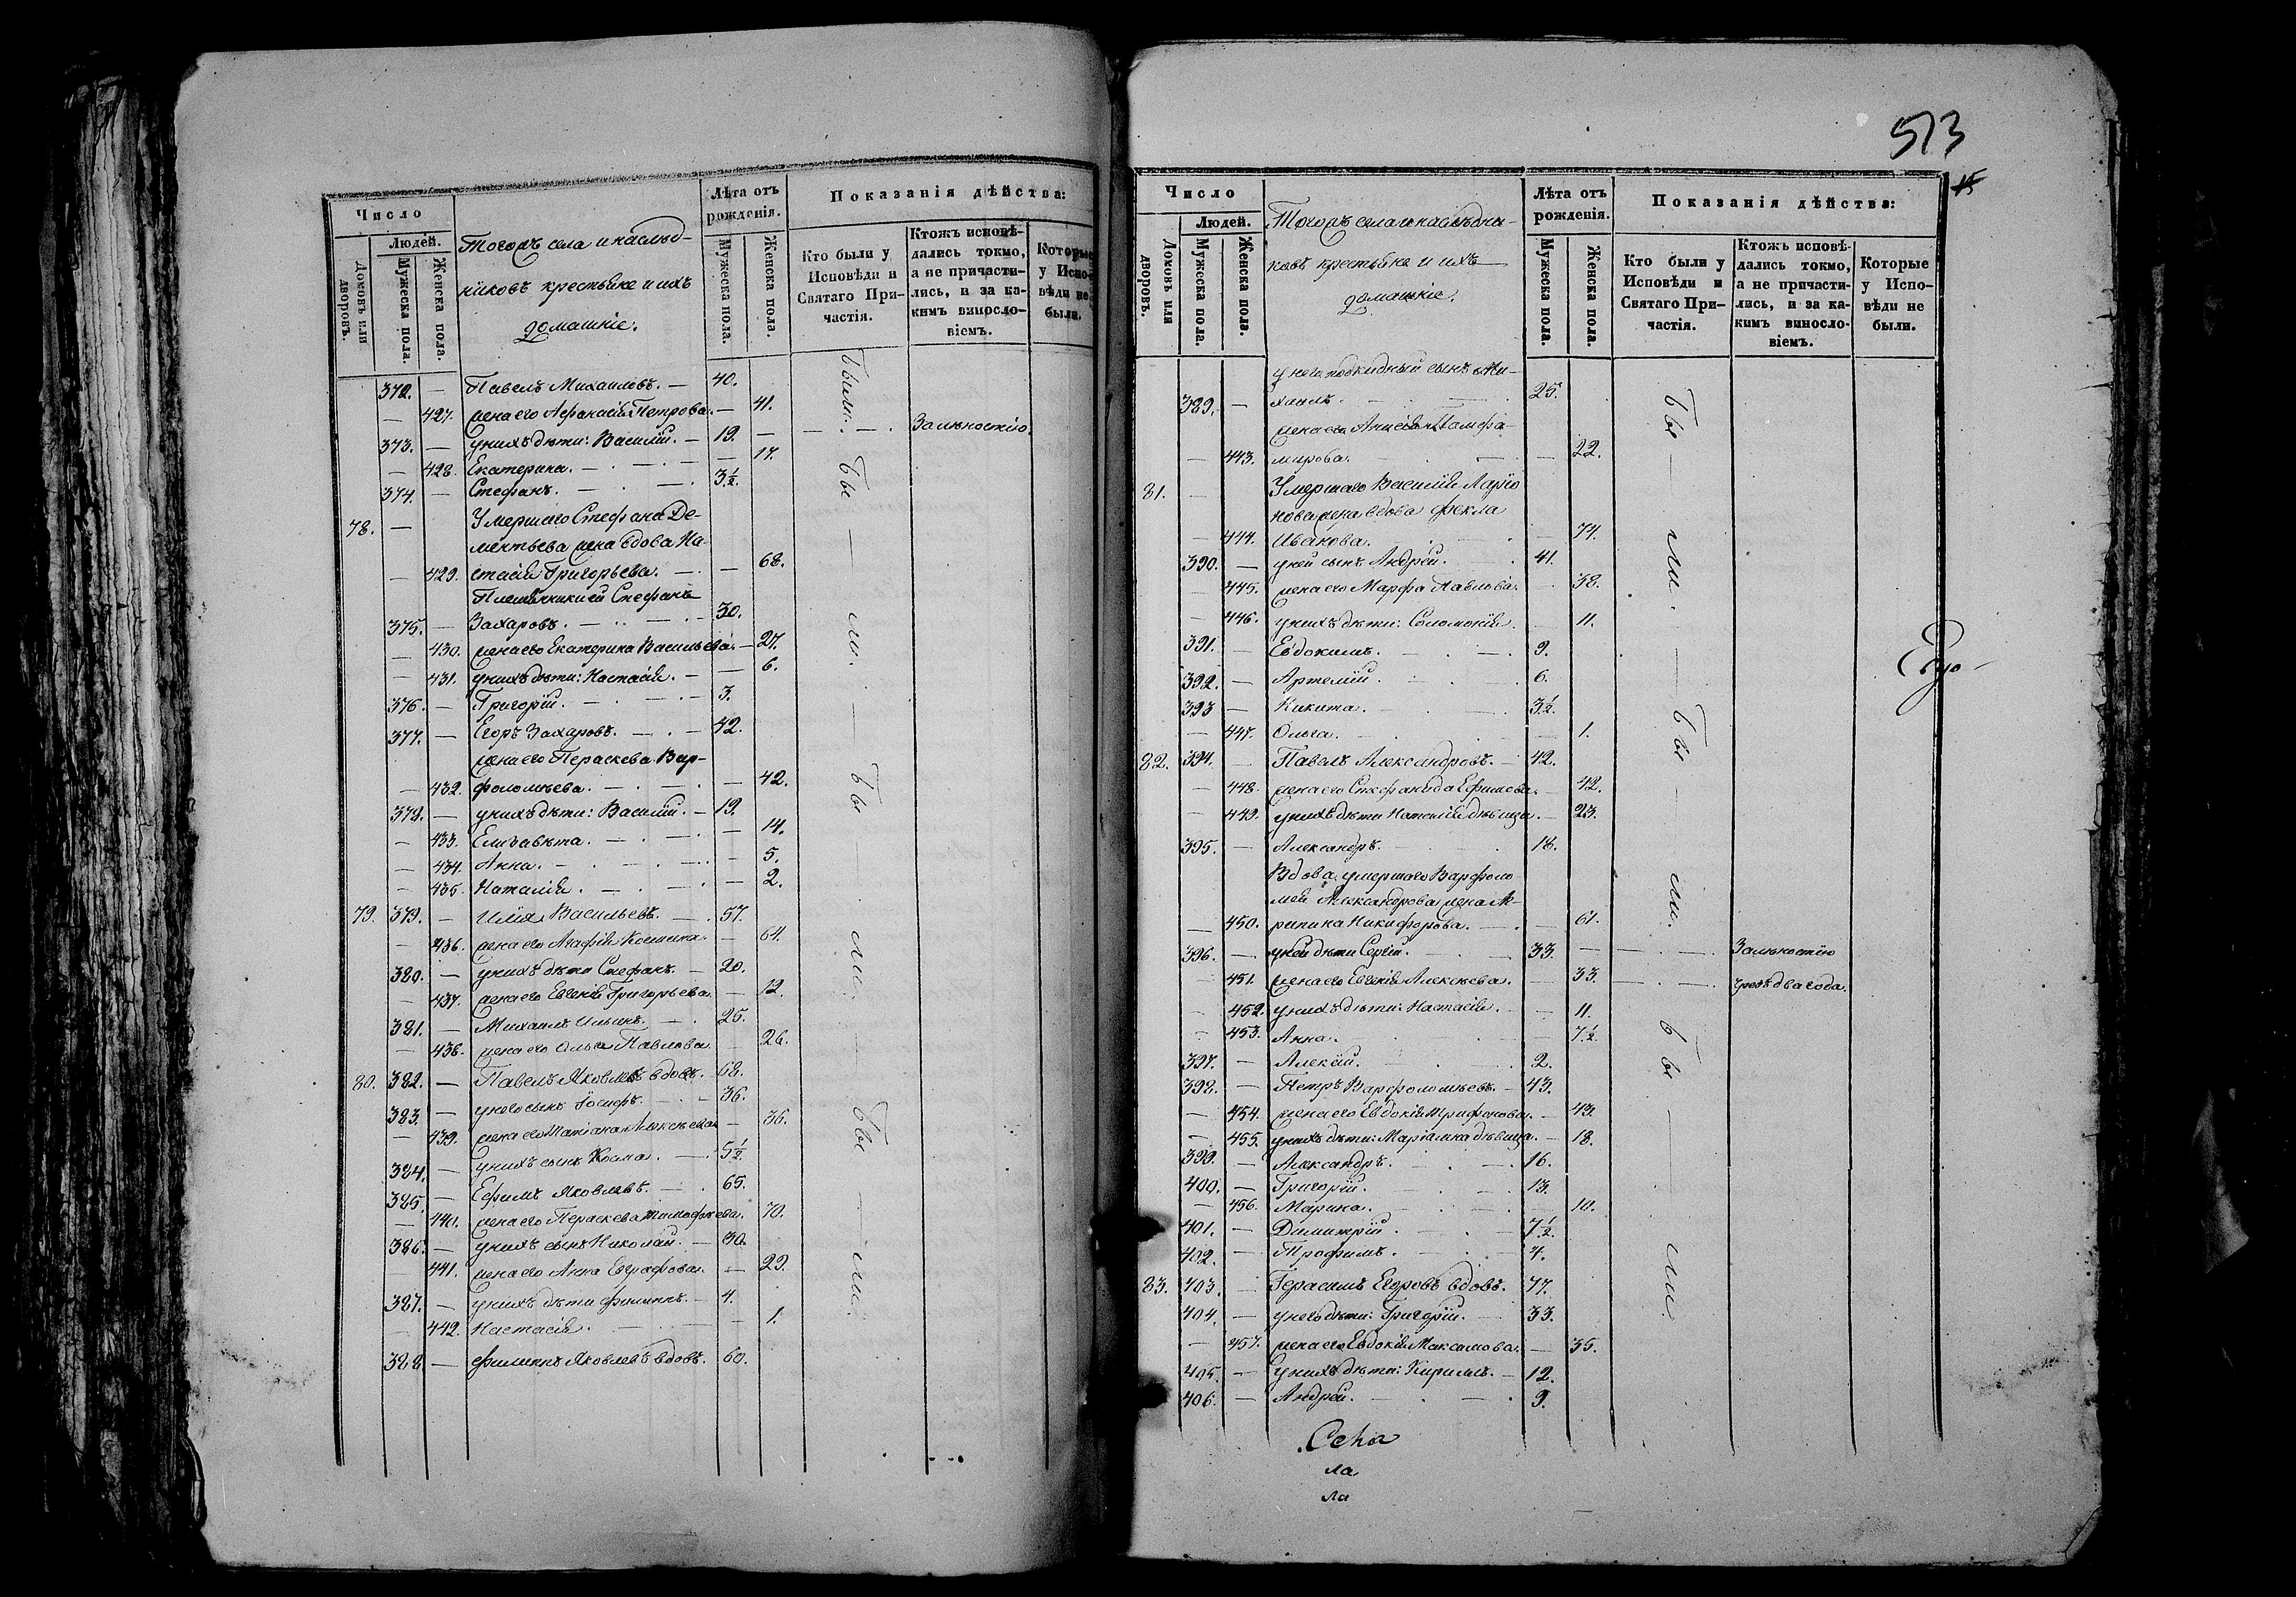 Число
Людей.
Домовъ или дворовъ.
Мужеска пола.
Женска пола.
Тогожъ села и наслѣд-
никовъ крестьяне и ихъ
домашніе.
Лѣта отъ рожденія.
Мужеска пола.
Женска пола.
Показанія дѣйства:
Кто были у Исповѣди и Святаго Причастія.
Ктожъ исповѣдались токмо, а не причастились, и за какимъ винословіемъ.
Которые у Исповѣди не были.
372. — Павелъ Михаиловъ. — 40. Были.
— 427. жена его Афанасія Петрова. — 41.
373. — у нихъ дѣти: Василій. — 19. — За лѣностію.
— 428. Екатерина. — 17. Бы
374. — Стефанъ. — 3½.
78. — Умершаго Стефана Де-
ментьева жена вдова На-
— 429. стасія Григорьева. — 68.
Племянники ей Стефанъ
375. — Захаровъ. — 30. ли.
— 430. жена его Екатерина Васильева. — 27.
— 431. у нихъ дѣти: Настасія. — 6.
376. — Григорій. — 3.
377. — Егоръ Захаровъ. — 42.
жена его Параскева Вар-
— 432. фоломѣева. — 42. Бы
378. — у нихъ дѣти: Василій. — 19.
— 433. Елизавѣта. — 14.
— 434. Анна. — 5.
— 435. Наталія. — 2.
79. 379. — Илія Васильевъ. — 57.
— 436. жена его Агафія Козмина. — 64. ли.
380. — у нихъ дѣти Стефанъ. — 20.
— 437. жена его Евгенія Григорьева. — 19.
381. — Михаилъ Ильинъ. — 25.
— 438. жена его Ольга Павлова. — 26.
80. 382. — Павелъ Яковлевъ вдовъ. — 68.
383. — у него сынъ Іосифъ. — 36. Бы
— 439. жена его Татіана Алексѣева. — 36.
384. — у нихъ сынъ Козма. — 5½.
385. — Ефимъ Яковлевъ. — 65.
— 440. жена его Параскева Тимофѣева. 70.
386. — у нихъ сынъ Николай. — 30.
— 441. жена его Анна Евграфова. — 29. ли.
387. — у нихъ дѣти Филиппъ. — 4.
— 442. Настасія. — 1.
388. — Филиппъ Яковлевъ вдовъ. 60.
513
15
Число
Людей.
Домовъ или дворовъ.
Мужеска пола.
Женска пола.
Тогожъ села и наслѣдни-
ковъ крестьяне и ихъ
домашніе.
Лѣта отъ рожденія.
Мужеска пола.
Женска пола.
Показанія дѣйства:
Кто были у Исповѣди и Святаго Причастія.
Ктожъ исповѣдались токмо, а не причастились, и за какимъ винословіемъ.
Которые у Исповѣди не были.
у него подкидный сынъ Ми-
389. — хаилъ. — 25. Бы
жена его Анисія Памфа-
— 443. мирова. — 22.
81. — Умершаго Василія Ларіо
нова жена вдова Фекла
— 444. Иванова. — 74. ли.
390. — у ней сынъ Андрей. 41.
— 445. жена его Марфа Павлова. — 38.
— 446. у нихъ дѣти: Соломонія. — 11.
391. — Евдокимъ. — 9.
392. — Артемій. 6.
393 — Никита. 3½.
— 447. Ольга. — 1. Бы
82. 394. — Павелъ Александровъ. — 42.
— 448. жена его Стефанида Ефимова. — 42.
— 449. у нихъ дѣти Наталія дѣвица. — 23.
395. — Александръ. 18.
Вдова умершаго Варфоло
мея Александрова жена А-
— 450. рипина Никифорова. — 61. ли.
396. — у ней дѣти Сергій. 33. — За лѣностію
— 451. жена его Евгенія Алексѣева. — 33. — чрезъ два года.
— 452. у нихъ дѣти: Настасія. — 11.
— 453. Анна. — 7½. Бы
397. — Алексій. 2.
398. — Петръ Варфоломѣевъ. — 43.
— 454. жена его Евдокія Трифонова. — 43.
— 455. у нихъ дѣти: Маріамна дѣвица. — 18.
399. — Александръ. — 16.
400. — Григорій. — 13.
— 456. Марина. — 10.
401. — Димитрій. — 7½.
402. — Трофимъ. — 4. ли.
83. 403. — Герасимъ Егоровъ вдовъ. 77.
404. — у него дѣти: Григорій. — 33.
— 457. жена его Евдокія Максимова. — 35.
405. — у нихъ дѣти: Кирилъ. — 12.
406. — Андрей. — 9.
ла
ла